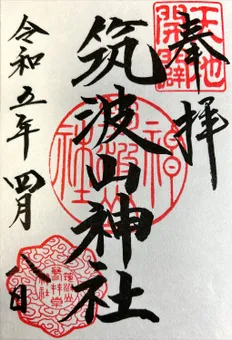 奉拝
天地開闢
筑波山神社
令和五年四月八日